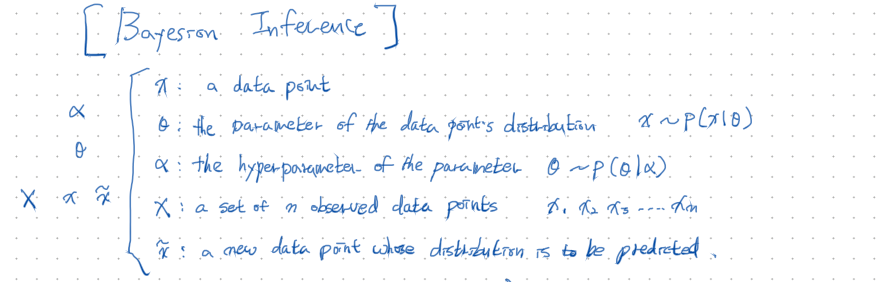 [Bayesian Inference]
x : a data point
α
θ : the parameter of the data point's distribution x ~ p(x|θ)
θ
α : the hyperparameter of the parameter θ ~ p(θ|α)
X x x̃
X : a set of n observed data points x₁ x₂ x₃ .... xₙ
x̃ : a new data point whose distribution is to be predicted.